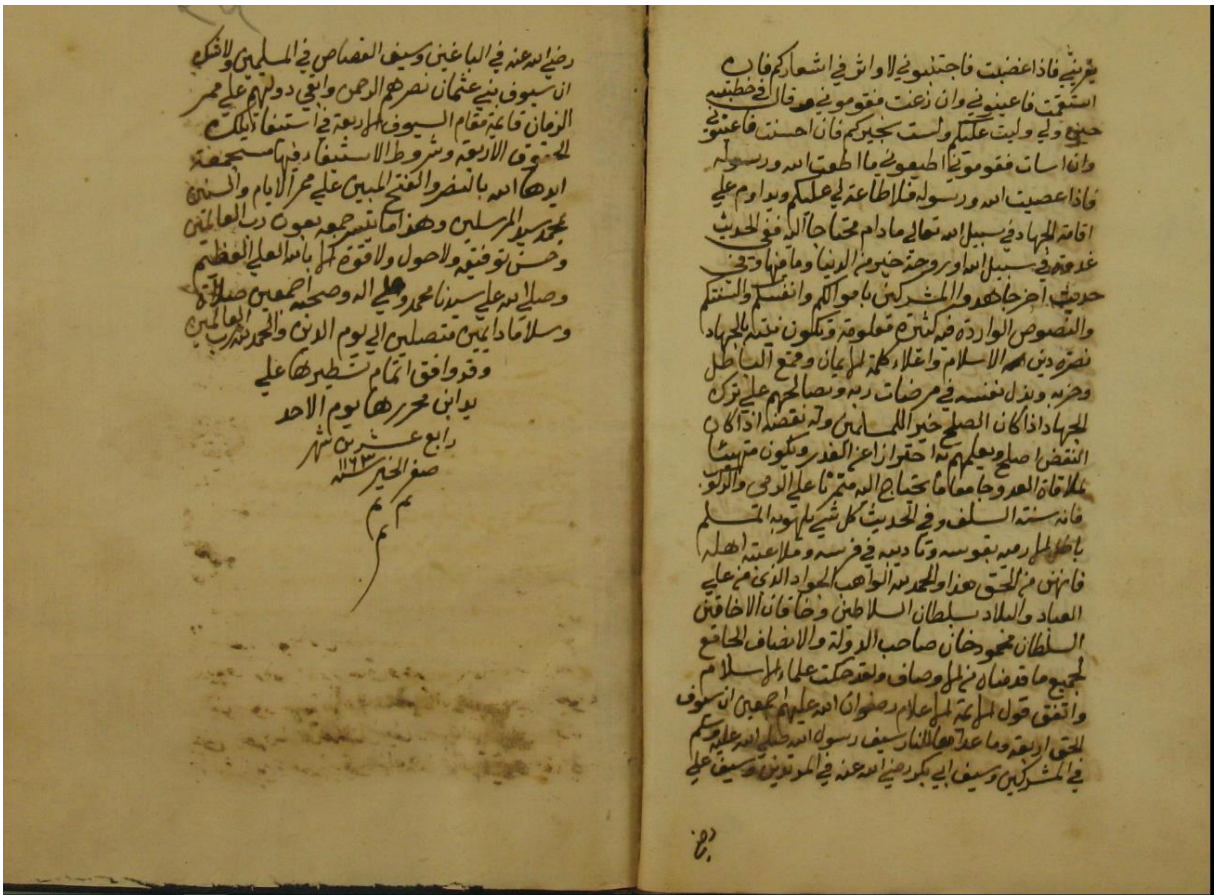 يغريني فاذا غضبت فاجتنبوني لا اوثر في اشعاركم فان
استقمت فاعينوني وان زغت فقوموني وقال في خطبته
حين ولي وليت عليكم ولست بخيركم فان احسنت فاعينوني
وان اسات فقوموني اطيعوني ما اطعت الله ورسوله
فاذا عصيت الله ورسوله فلا طاعة لي عليكم ويداوم علي
اقامة الجهاد في سبيل الله تعالي مادام محتاجا اليه ففي الحديث
غدوة في سبيل الله او روحة خير من الدنيا وما فيها وفي
حديث اخر جاهدوا المشركين باموالكم وانفسكم والسنتكم
والنصوص الوارده فيه كثيرة معلومة وتكون نيته بالجهاد
نصرة دين الاسلام واعلاء كلمة الايمان وقمع الباطل
وحزبه وبذل نفسه في مرضات ربه ويصالحهم علي ترك
الجهاد اذا كان الصلح خير اللمسلمين وله نقضه اذا كان
النقض اصلح ويعلمهم به احترازا عن الغدر ويكون متهيئا
لملاقاة العدو جامعا ما يحتاج اليه متمرنا علي الرمي والركوب
فانه سنة السلف وفي الحديث كل شي يلهو به المسلم
باطل الا رميه بقوسه وتاديبه في فرسه وملاعبته اهله
فانهن من الحق هذا والحمد لله الواهب الجواد الذي من علي
العباد والبلاد بسلطان السلاطين وخاقان الاخاقين
السلطان محمود خان صاحب الدولة والانصاف الجامع
لجميع ما قدمناه من الاوصاف ولقد حكت علماء الاسلام
واتفق قول الايمة الاعلام رضوان الله عليهم اجمعين ان سيوف
الحق اربعة وما عداها للنار سيف رسول الله صلي الله عليه وسلم
في المشركين وسيف ابي بكر رضي الله عنه في المرتدين وسيف علي
رضي
رضي الله عنه في الباغين وسيف القصاص في المسلمين ولا شك
ان سيوف بني عثمان نصرهم الرحمن وابقي دولتهم علي ممر
الزمان قايمة مقام السيوف الاربعة في استيفا تلك
الحقوق الاربعة وشروط الاستيفاء فيها مستجمعة
ايدها الله بالنصر والفتح المبين علي ممر الايام والسنين
بمحمد سيد المرسلين وهذا ما تيسر جمعه بعون رب العالمين
وحسن توفيقه ولا حول ولا قوة الا بالله العلي العظيم
وصلي الله علي سيدنا محمد وعلي اله وصحبه اجمعين صلاة
وسلاما دايمين متصلين الي يوم الدين والحمد لله رب العالمين
وقد وافق اتمام تسطيرها علي
يد ابن محررها يوم الاحد
رابع عشرين شهر
صفر الخير سنة ١١٦٣
م م
م